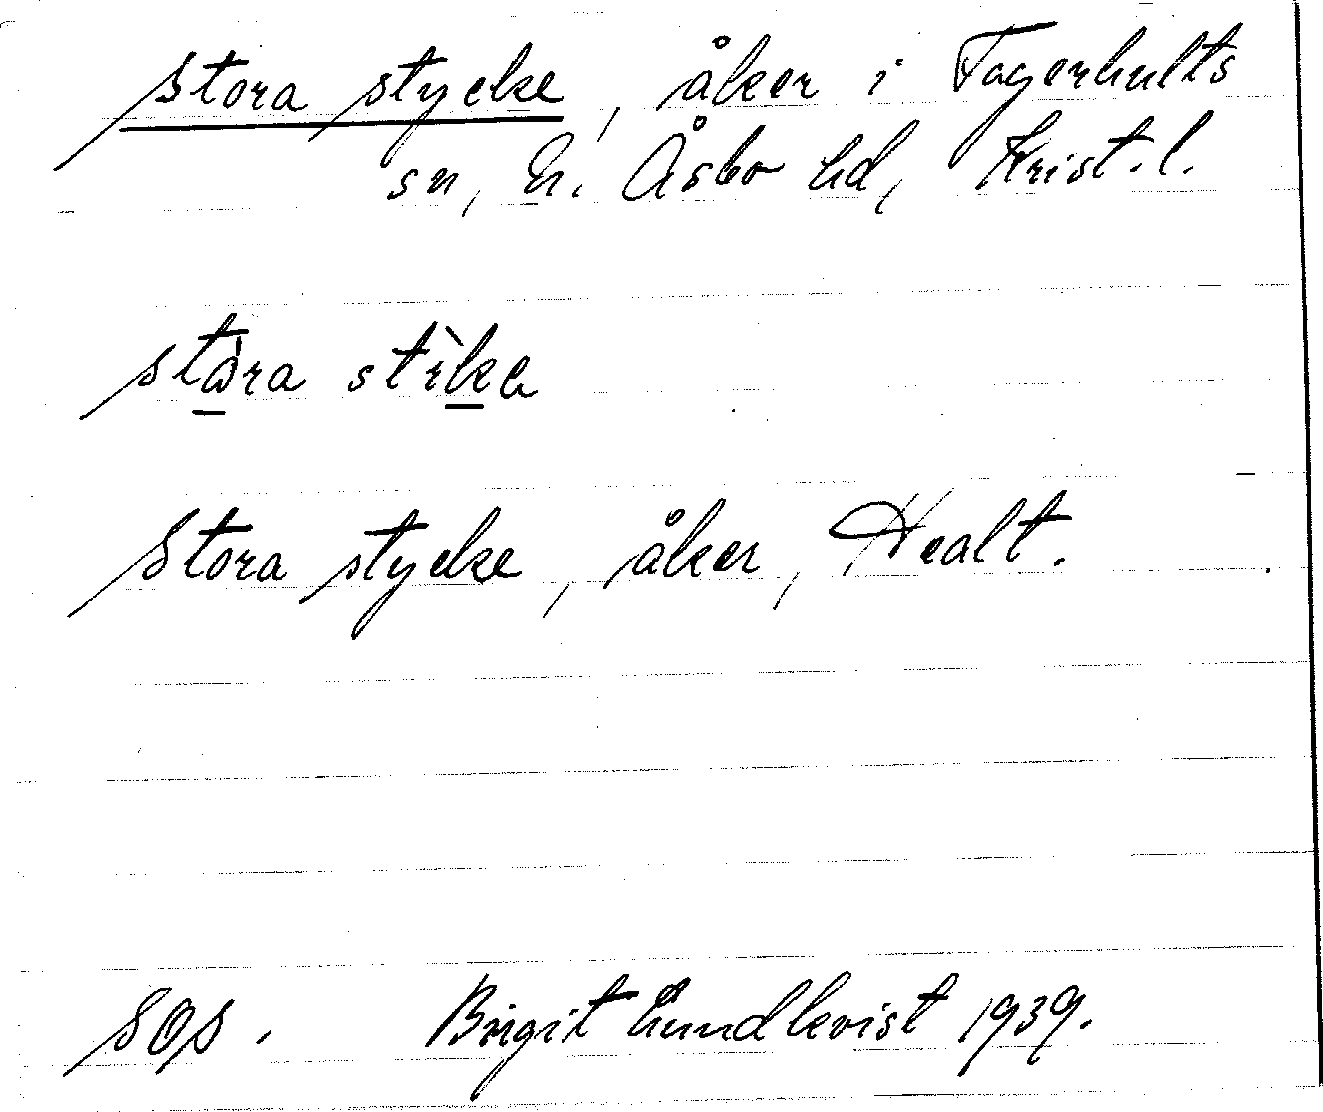 Stora stycke, åker i Fagerhults
sn, N. Åsbo hd, Krist. l.
stòra stìke
Stora stycke, åker, Healt.
SOS. Birgit Lundkvist 1939.